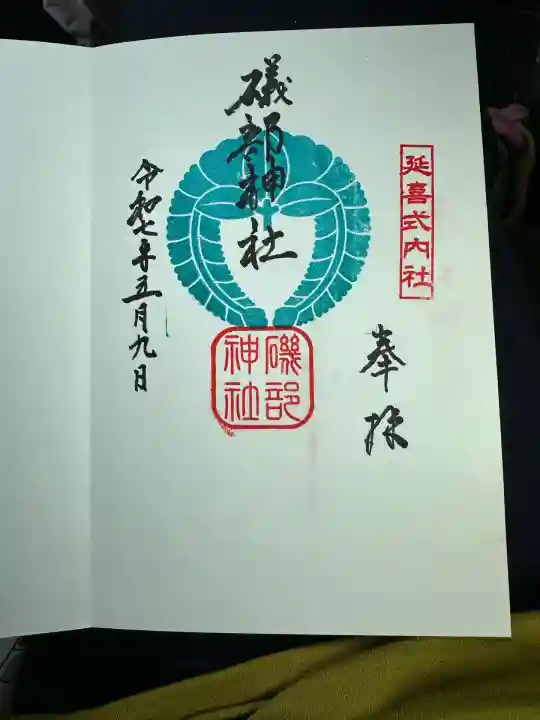 延喜式内社
奉拝
礒部神社
磯部
神社
令和七年五月九日